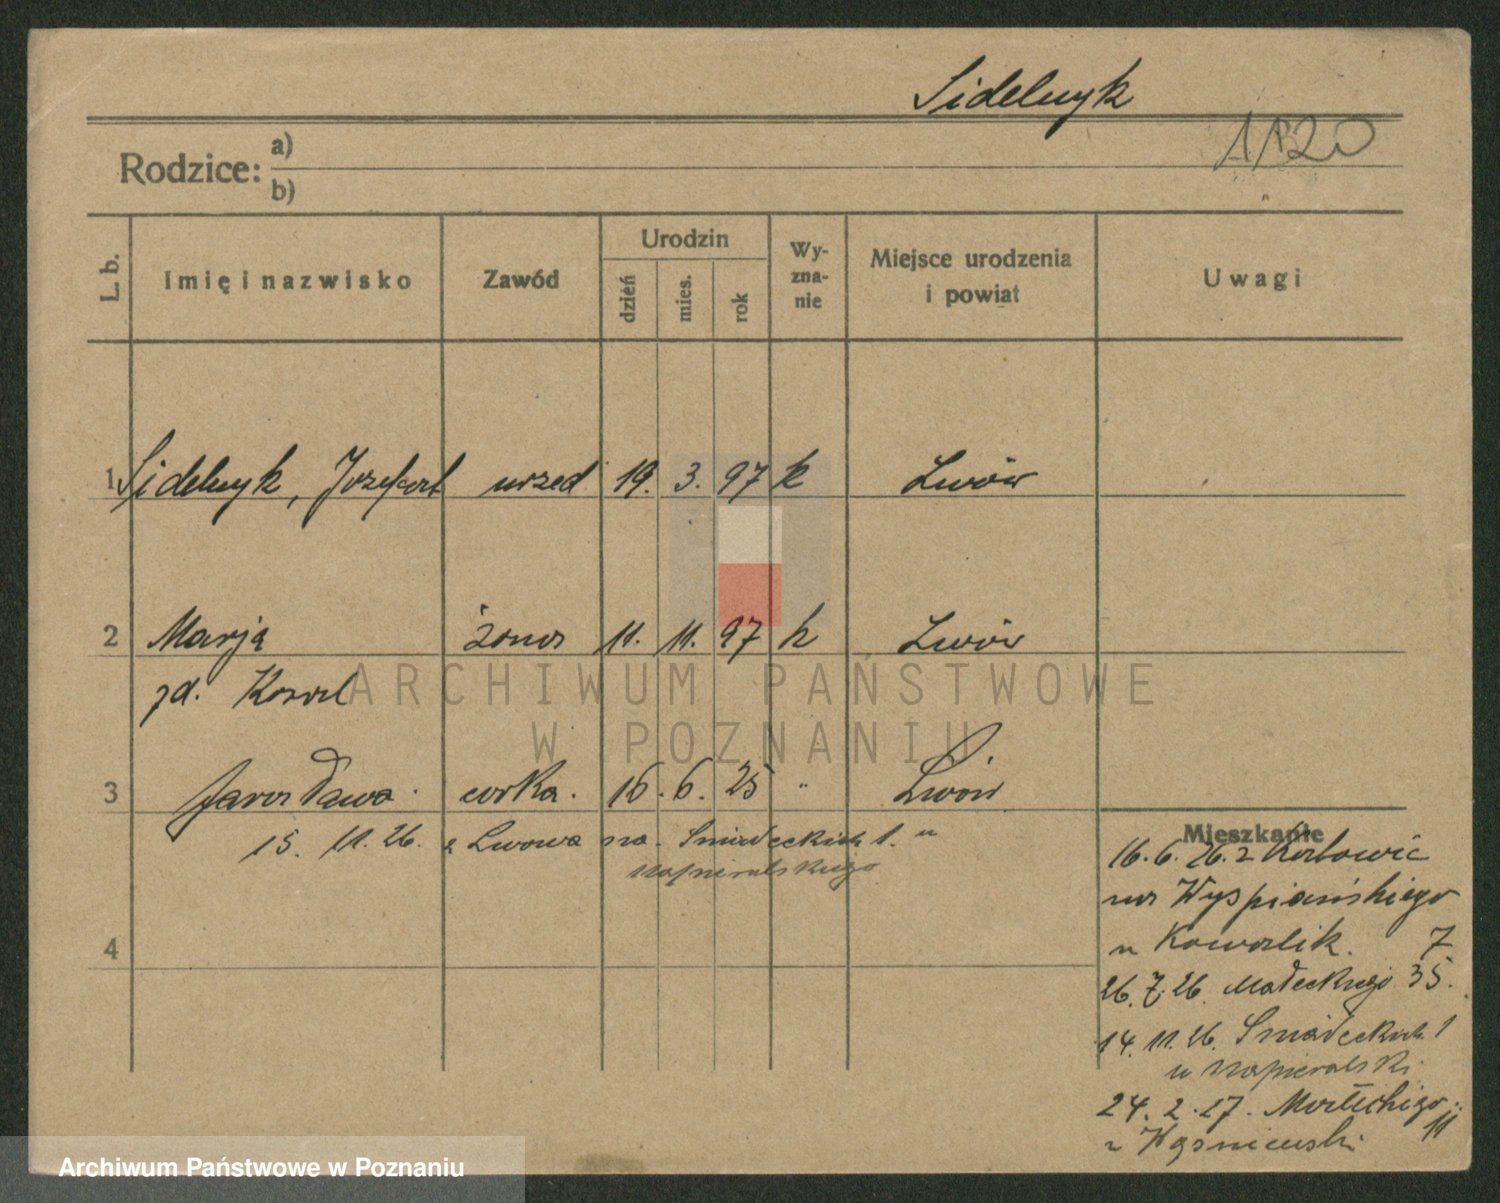 Sidelnyk
1820
Rodzice: a)
b)
L. b.
Imię i nazwisko
Zawód
Urodzin
dzień
mies.
rok
Wy-
zna-
nie
Miejsce urodzenia
i powiat
Uwagi
1 Sidelnyk, Jozefat urzed 19. 3. 97 k Lwów
2 Marja żona 11. 11. 97 k Lwów
zd. Kowal
ARCHIWUM PAŃSTWOWE
W POZNANIU
3 Jarosława corka. 16. 6. 25 " Lwów
15. 11. 26. z Lwowa na Śniadeckich 1. u
Napieralskiego
4
Mieszkanie
16. 6. 26. z
na Wyspiańskiego
u Kowalik. 7
26. 7. 26. Małeckiego 35.
14. 11. 26. Śniadeckich 1
u Napieralski
24. 2. 27. 11
u Wąsniewski
Archiwum Państwowe w Poznaniu